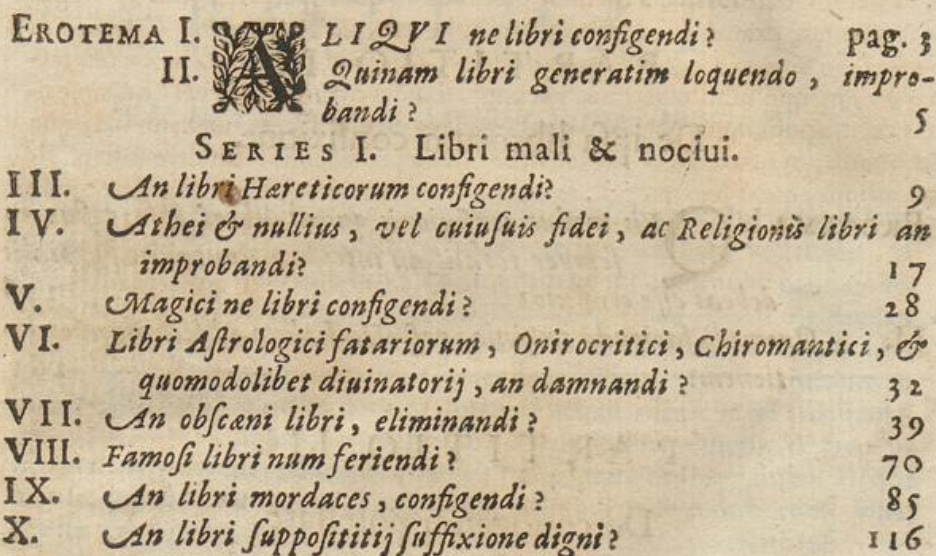 EROTEMA I. ALIQVI ne libri configendi? pag. 3
II. Quinam libri generatim loquendo, impro-
bandi? 5
SERIES I. Libri mali & nociui.
III. An libri Hæreticorum configendi? 9
IV. Athei & nullius, vel cuiuſuis fidei, ac Religionis libri an
improbandi? 17
V. Magici ne libri configendi? 28
VI. Libri Aſtrologici fatariorum, Onirocritici, Chiromantici, &
quomodolibet diuinatorij, an damnandi? 32
VII. An obſcæni libri, eliminandi? 39
VIII. Famoſi libri num feriendi? 70
IX. An libri mordaces, configendi? 85
X. An libri ſuppoſititij ſuffixione digni? 116